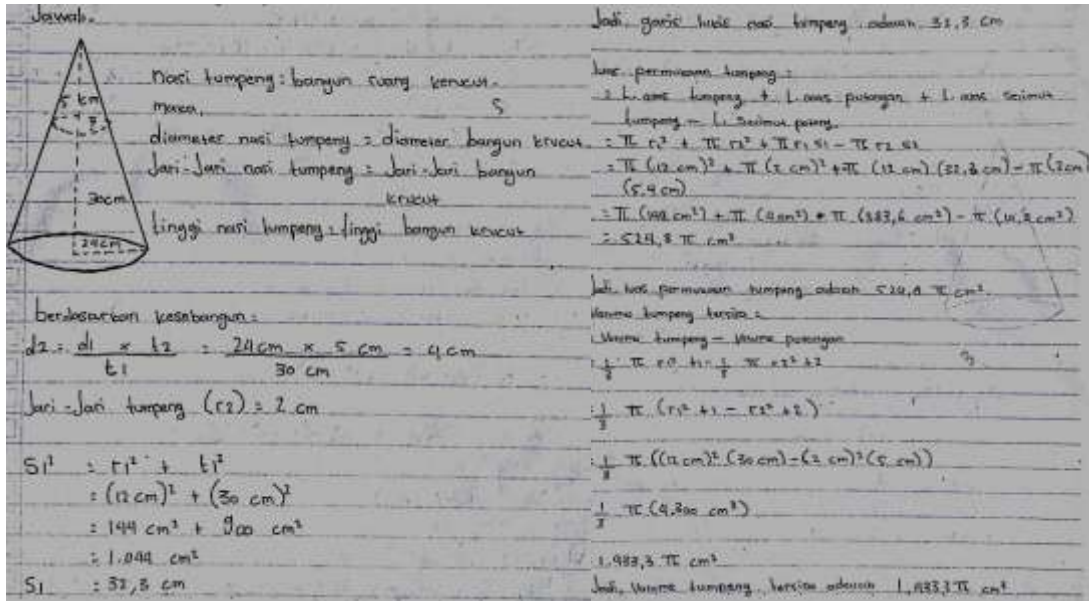 Jawab.
5 cm
30cm
24cm
Nasi tumpeng : bangun ruang kerucut.
maka,
S
diameter nasi tumpeng = diameter bangun krucut
Jari-Jari nasi tumpeng = Jari-Jari bangun
krucut
tinggi nasi tumpeng = tinggi bangun krucut
berdasarkan kesebangun =
d2 = d1 x t2 / t1 = 24 cm x 5 cm / 30 cm = 4 cm
Jari-Jari tumpeng (r2) = 2 cm
S1² = r1² + t1²
= (12 cm)² + (30 cm)²
= 144 cm² + 900 cm²
= 1.044 cm²
S1 = 32,3 cm
Jadi, garis lukis nasi tumpeng adalah 32,3 cm
luas permukaan tumpeng =
= L. alas tumpeng + L. alas potongan + L. alas selimut
tumpeng - L. selimut potong
= π r1² + π r2² + π r1 s1 - π r2 s2
= π (12 cm)² + π (2 cm)² + π (12 cm) (32,3 cm) - π (2cm)
(5,4 cm)
= π (144 cm²) + π (4 cm²) + π (383,6 cm²) - π ( cm²)
= 524,8 π cm²
Jadi, luas permukaan tumpeng adalah 524,8 π cm².
Volume tumpeng tersisa =
Volume tumpeng - Volume potongan
1/3 π r1² t1 - 1/3 π r2² t2
1/3 π (r1² t1 - r2² t2)
1/3 π ((12 cm)² (30 cm) - (2 cm)² (5 cm))
1/3 π (4.300 cm³)
1.433,3 π cm³
Jadi, Volume tumpeng tersisa adalah 1.433,3 π cm³